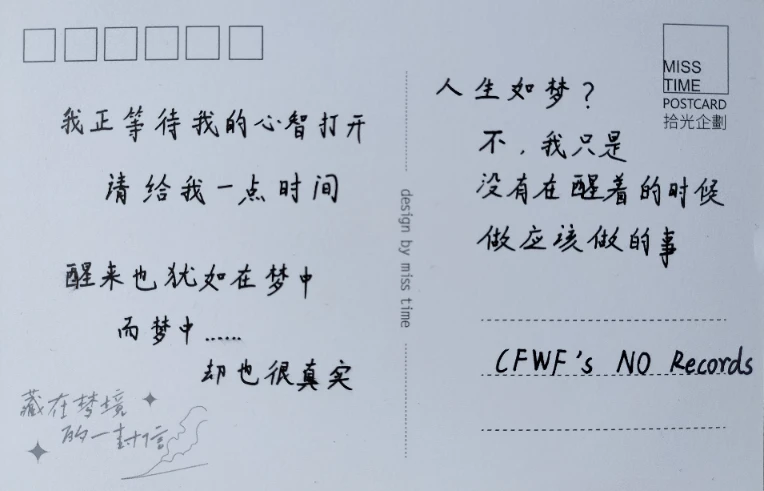 我正等待我的心智打开
请给我一点时间
醒来也犹如在梦中
而梦中……
却也很真实
藏在梦境
的一封信
design by miss time
MISS
TIME
POSTCARD
拾光企劃
人生如梦?
不,我只是
没有在醒着的时候
做应该做的事
CFWF's NO Records